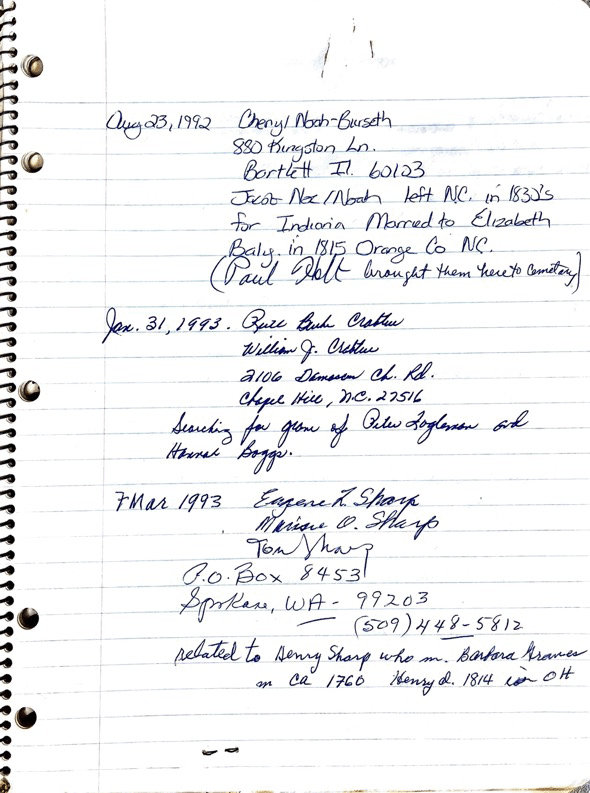 Aug 23, 1992 Cheryl Noah-Burseth
880 Kingston Ln.
Bartlett Il. 60123
Jacob Noe/Noah left N.C. in 1830's
for Indiana Married to Elizabeth
Baly. in 1815 Orange Co NC.
(Paul Holt brought them here to cemetary)
Jan. 31, 1993. Crabtree
William J. Crabtree
2106 Damascus Ch. Rd.
Chapel Hill, N.C. 27516
Searching for grave of Peter Fogleman and
Hannah Boggs.
7 Mar 1993 Eugene L. Sharp
O. Sharp
Tom Sharp
P.O. Box 8453
Spokane, WA - 99203
(509) 448-5812
related to Henry Sharp who m. Barbara Graves
m ca 1760 Henry d. 1814 in OH